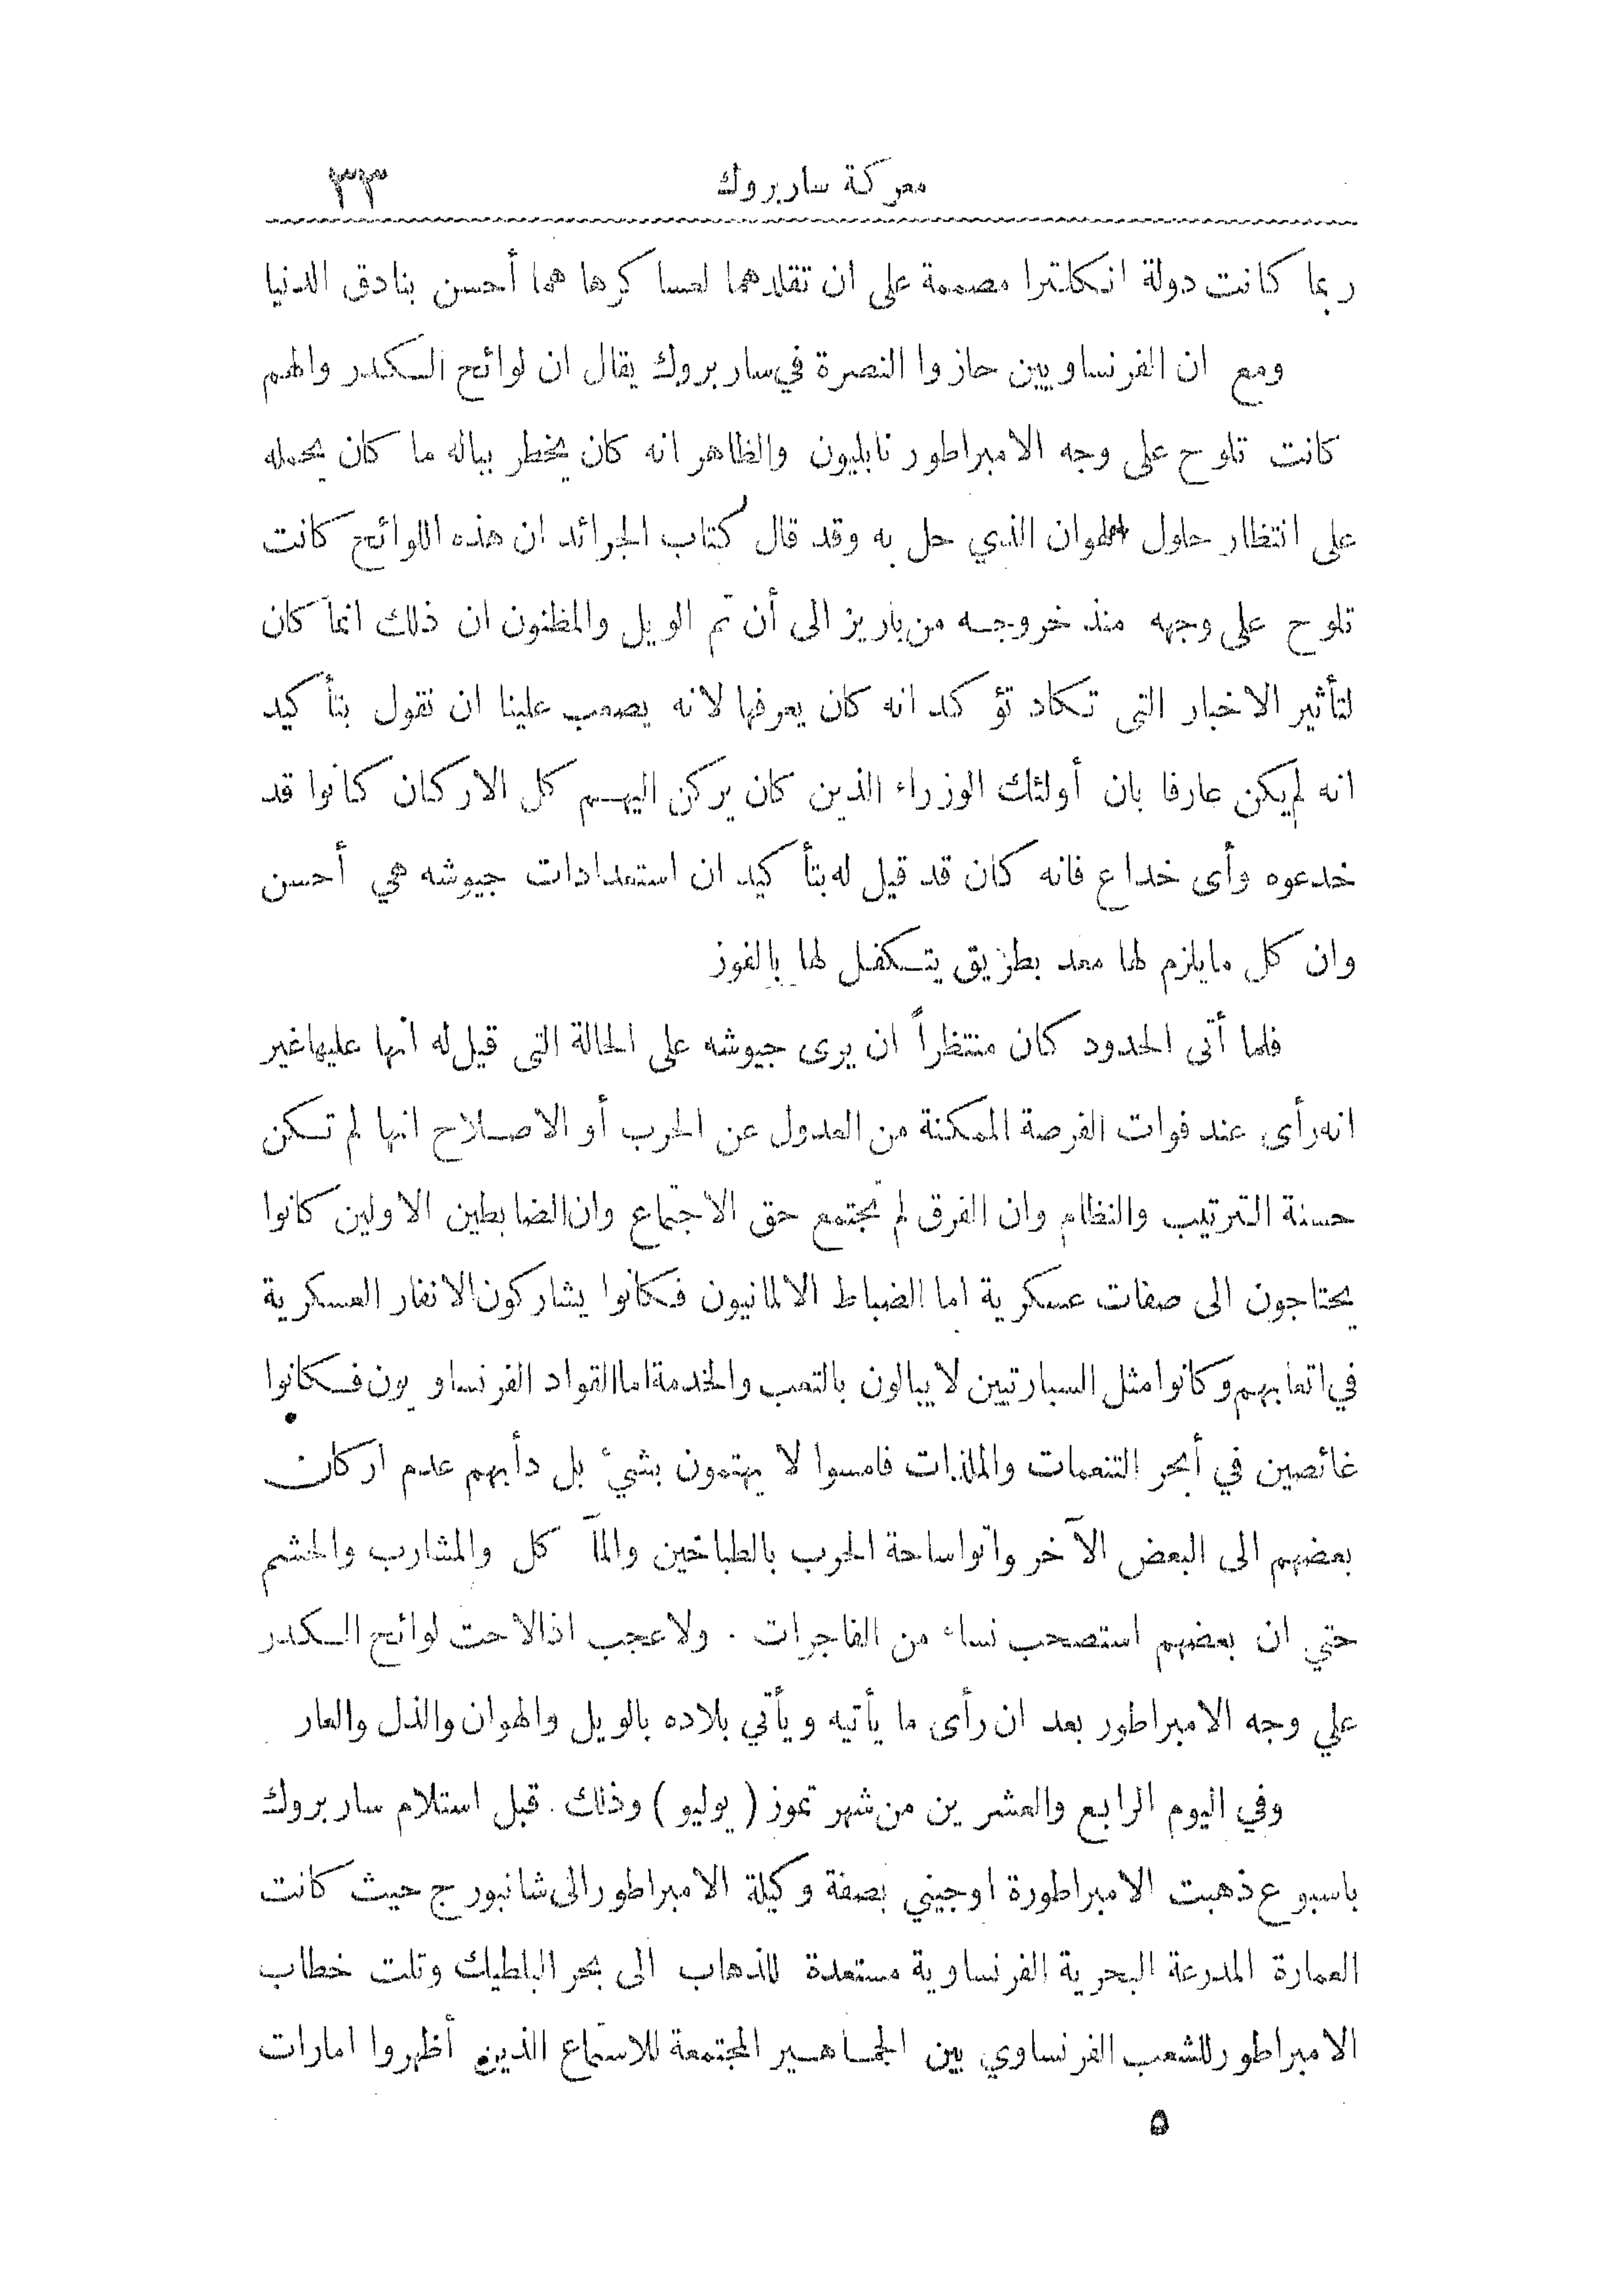 معركة ساربروك ٣٣
ربما كانت دولة انكلترا مصممة على ان تقلدهما لعساكرها هما أحسن بنادق الدنيا
ومع ان الفرنساويين حازوا النصرة في ساربروك يقال ان لوائح الكدر والهم
كانت تلوح على وجه الامبراطور نابليون والظاهر انه كان يخطر بباله ما كان يحمله
على انتظار حلول الهوان الذي حل به وقد قال كتاب الجرائد ان هذه اللوائح كانت
تلوح على وجهه منذ خروجه من باريز الى أن تم الويل والمظنون ان ذلك انما كان
لتأثير الاخبار التى تكاد تؤكد انه كان يعرفها لانه يصعب علينا ان نقول بتأكيد
انه لم يكن عارفا بان أولئك الوزراء الذين كان يركن اليهم كل الاركان كانوا قد
خدعوه وأى خداع فانه كان قد قيل له بتأكيد ان استعدادات جيوشه هي أحسن
وان كل ما يلزم لها معد بطريق يتكفل لها بالفوز
فلما أتى الحدود كان منتظراً ان يرى جيوشه على الحالة التى قيل له انها عليها غير
انه رأى عند فوات الفرصة الممكنة من العدول عن الحرب أو الاصلاح انها لم تكن
حسنة الترتيب والنظام وان الفرق لم تجتمع حق الاجتماع وان الضابطين الاولين كانوا
يحتاجون الى صفات عسكرية اما الضباط الالمانيون فكانوا يشاركون الانفار العسكرية
في اتعابهم وكانوا مثل السبارتيين لا يبالون بالتعب والخدمة اما القواد الفرنساويون فكانوا
غائصين في أبحر التنعمات والملذات فامسوا لا يهتمون بشيء بل دأبهم عدم اركان
بعضهم الى البعض الآخر واتوا ساحة الحرب بالطباخين والمآكل والمشارب والحشم
حتي ان بعضهم استصحب نساء من الفاجرات . ولا عجب اذا لاحت لوائح الكدر
علي وجه الامبراطور بعد ان رأى ما يأتيه ويأتي بلاده بالويل والهوان والذل والعار
وفي اليوم الرابع والعشرين من شهر تموز ( يوليو ) وذلك قبل استلام ساربروك
باسبوع ذهبت الامبراطورة اوجيني بصفة وكيلة الامبراطور الى شانبورج حيث كانت
العمارة المدرعة البحرية الفرنساوية مستعدة للذهاب الى بحر البلطيك وتلت خطاب
الامبراطور للشعب الفرنساوي بين الجماهير المجتمعة للاستماع الذين أظهروا امارات
٥